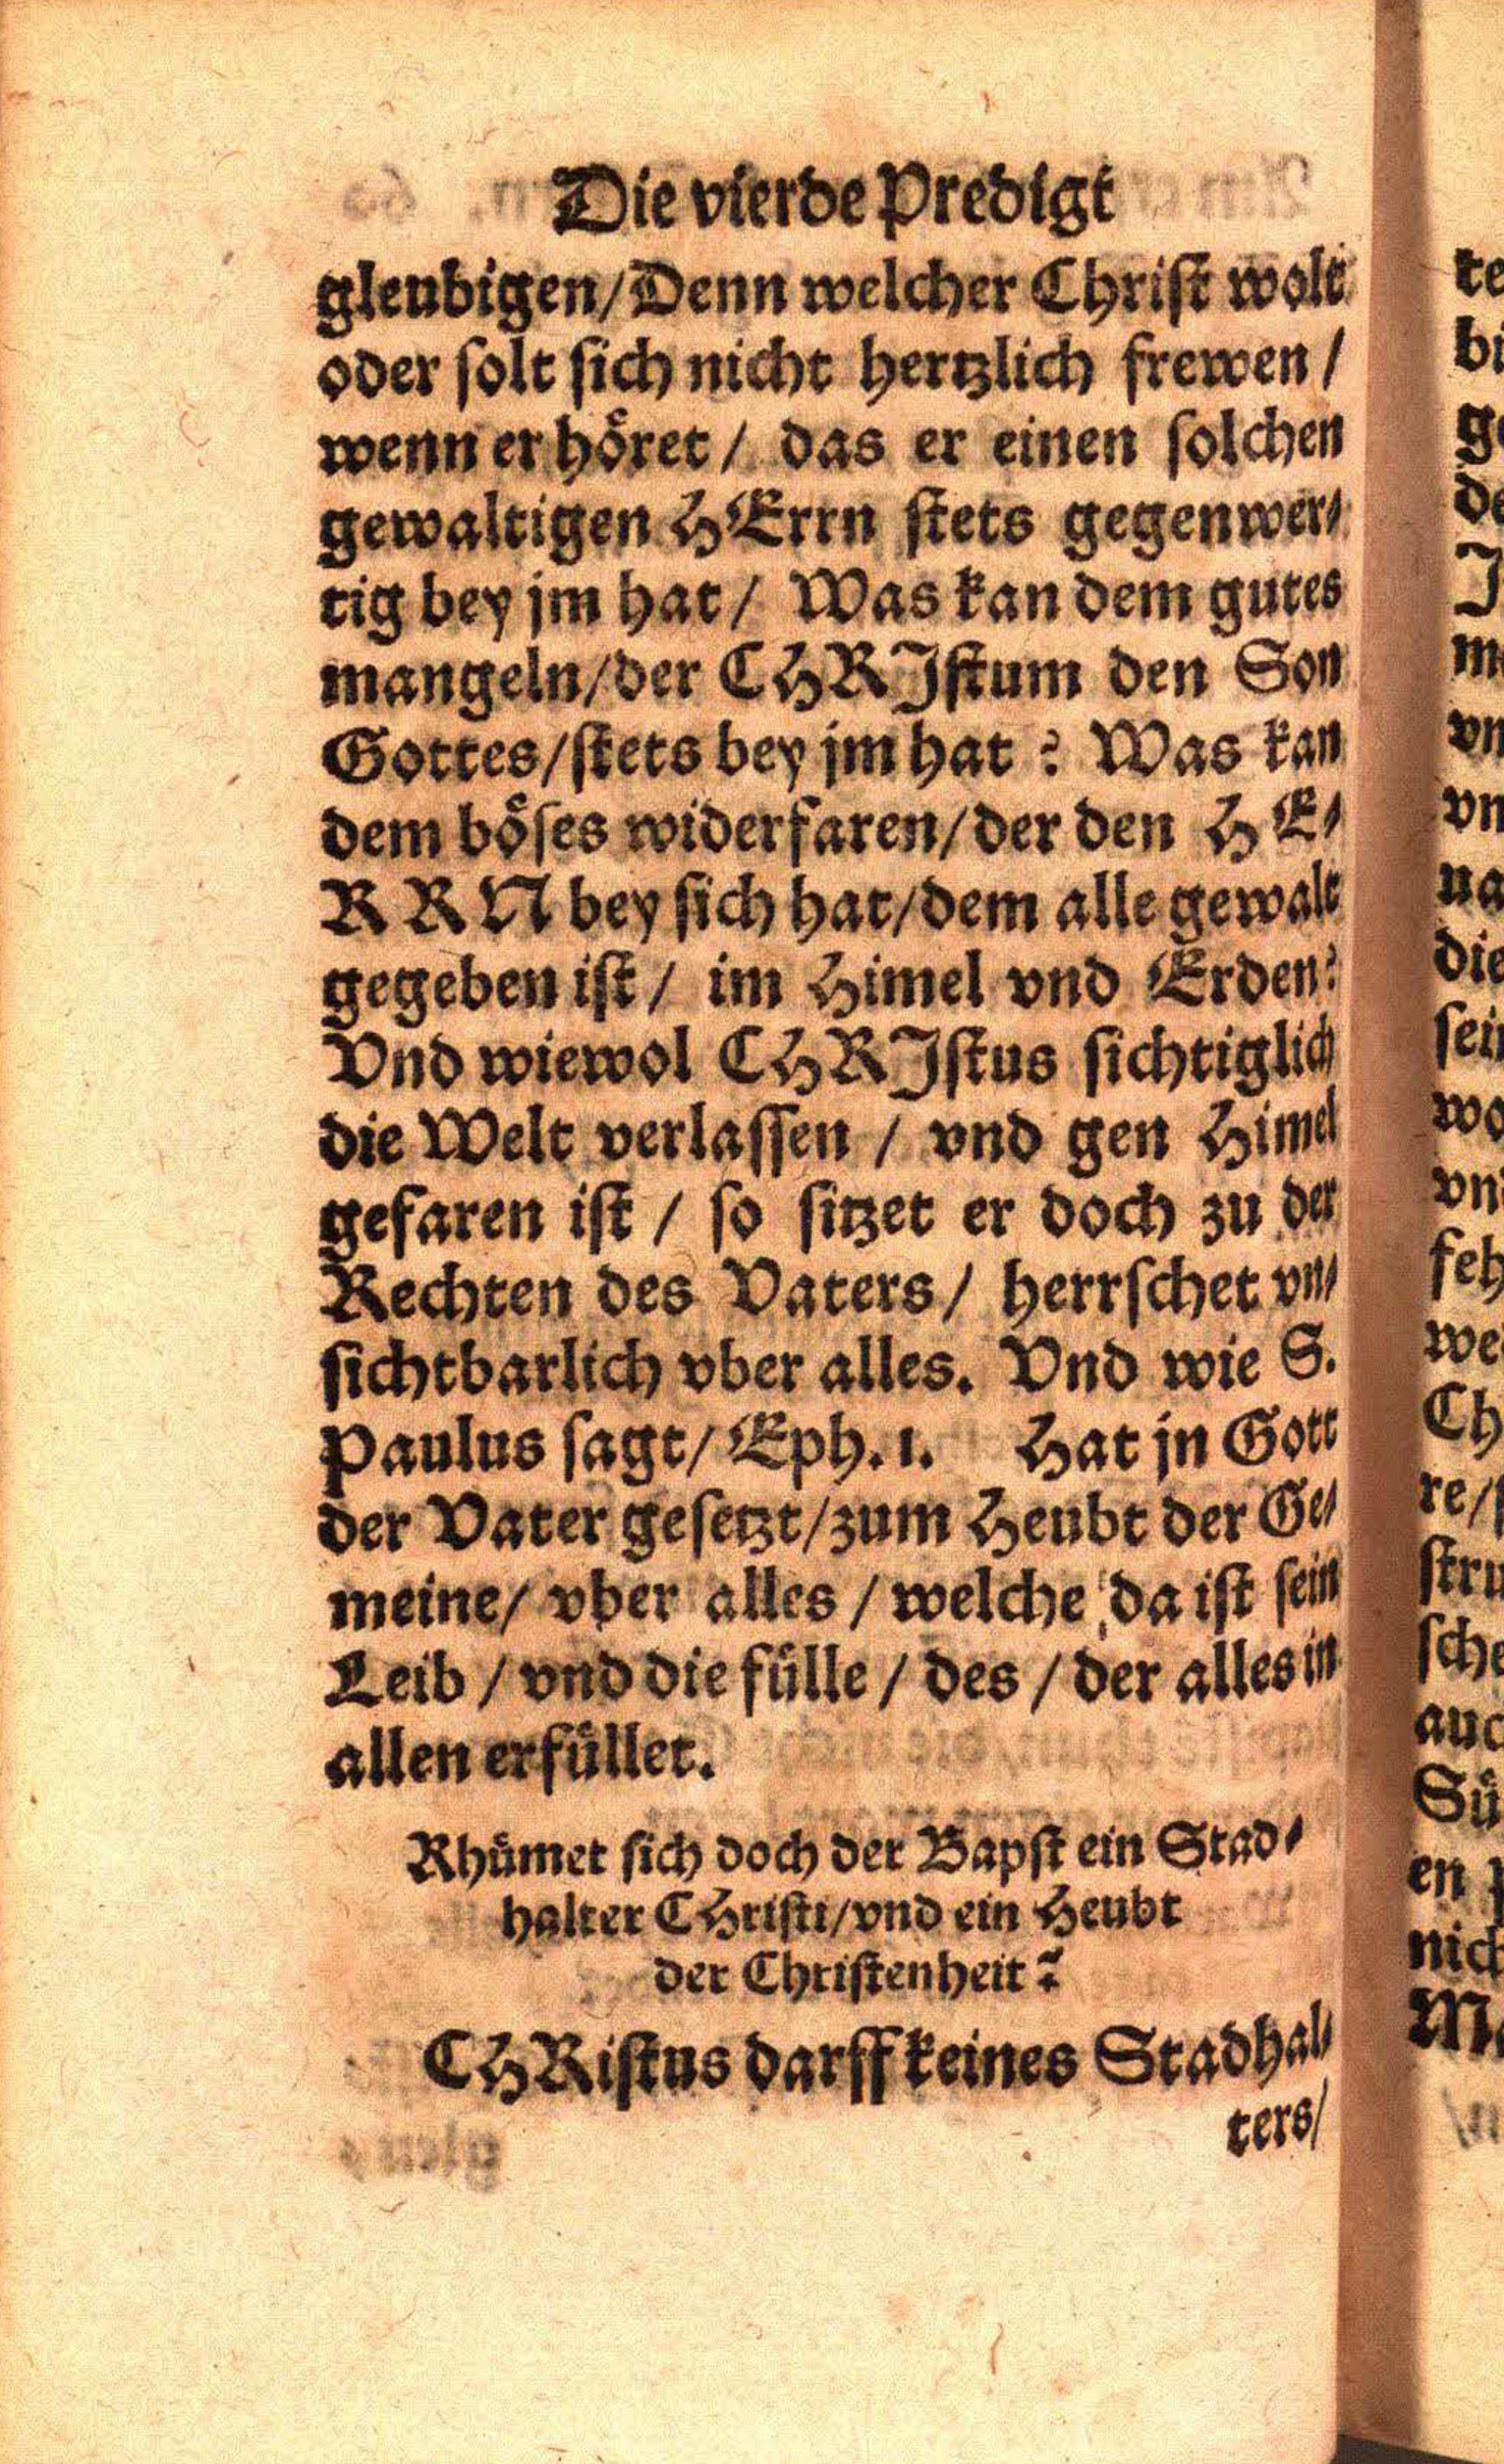 Die vierde Predigt
gleubigen/Denn welcher Christ wolt
oder solt sich nicht hertzlich frewen /
wenn er hoͤret / das er einen solchen
gewaltigen HErrn stets gegenwer⸗
tig bey jm hat / Was kan dem gutes
mangeln/der CHRJstum den Son
Gottes/stets bey jm hat ? Was kan
dem boͤses widerfaren/der den HE⸗
RRN bey sich hat/dem alle gewalt
gegeben ist / im Himel vnd Erden?
Vnd wiewol CHRJstus sichtiglich
die Welt verlassen / vnd gen Himel
gefaren ist / so sitzet er doch zu der
Rechten des Vaters / herrschet vn⸗
sichtbarlich vber alles. Vnd wie S.
Paulus sagt/ Eph. 1. Hat jn Gott
der Vater gesetzt/zum Heubt der Ge⸗
meine/ vber alles / welche da ist sein
Leib / vnd die fuͤlle / des / der alles in
allen erfuͤllet.
Rhuͤmet sich doch der Bapst ein Stad⸗
halter CHristi/vnd ein Heubt
der Christenheit?
CHRistus darff keines Stadhal⸗
ters/
te
bi
ge
de
J
m
vn
vn
na
die
sein
wo
vn
feh
wei
Ch
re/
stru
sche
auc
Suͤ
en
nich
Ma